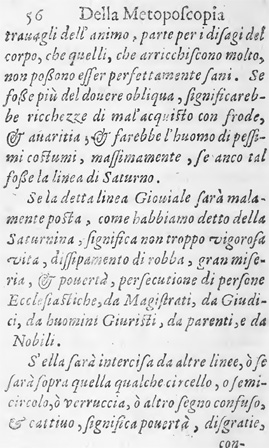 56 Della Metoposcopia
trauagli dell'animo, parte per i disagi del
corpo, che quelli, che arricchiscono molto,
non possono esser perfettamente sani. Se
fosse più del douere obliqua, significareb-
be ricchezze di mal'acquisto con frode,
& auaritia, & farebbe l'huomo di pessi-
mi costumi, massimamente, se anco tal
fosse la linea di Saturno.
Se la detta linea Giouiale sarà mala-
mente posta, come habbiamo detto della
Saturnina, significa non troppo vigorosa
vita, dissipamento di robba, gran mise-
ria, & pouertà, persecutione di persone
Ecclesiastiche, da Magistrati, da Giudi-
ci, da huomini Giuristi, da parenti, e da
Nobili.
S'ella sarà intercisa da altre linee, ò se
sarà sopra quella qualche circello, o semi-
circolo, ò verruccia, ò altro segno confuso,
& cattiuo, significa pouertà, disgratie,
con-